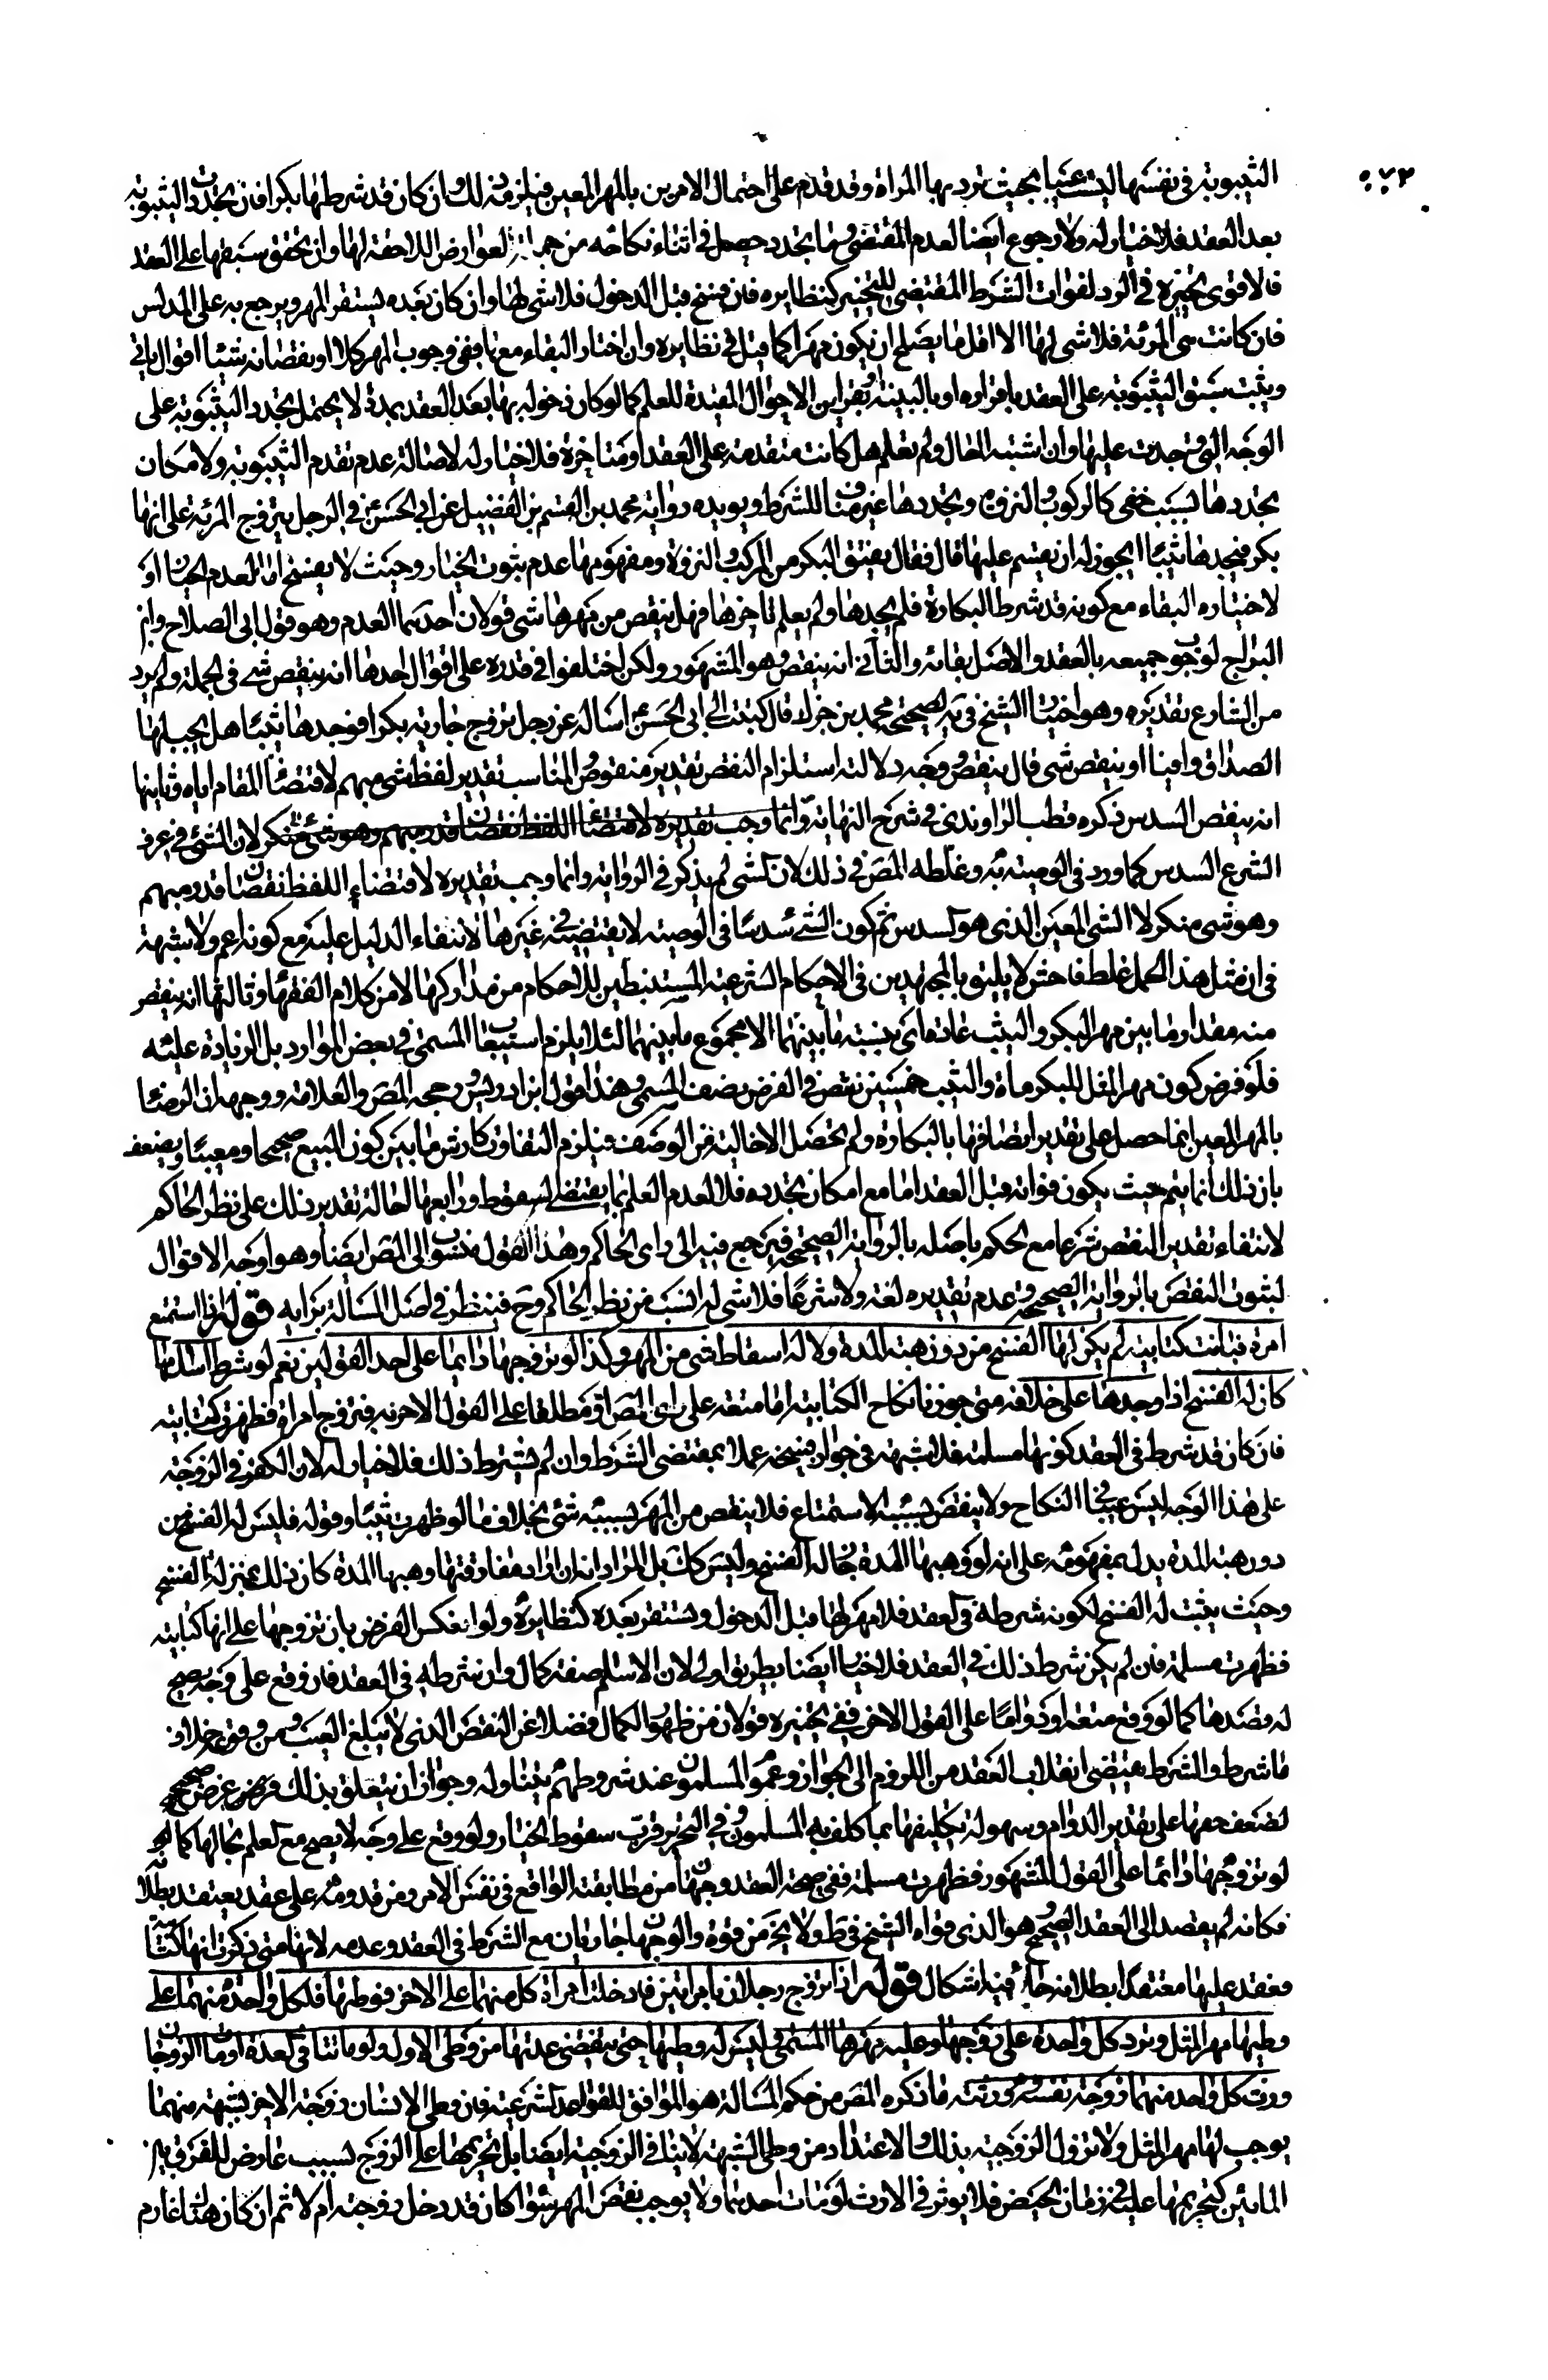 ٥٧٣
الثيبوبة في نفسها ليست عيبا بحيث ترد بها المراة وقد قدم على احتمال الامرين بالمهر المعين فيلزمه ذلك وان كان قد شرطها بكرا فان تجددت الثيبوبة
بعد العقد فلا خيار له ولا رجوع ايضا لعدم المقتضي وما تجدد حصل في اثناء نكاحه من جملة العوارض اللاحقة لها وان تحقق سبقها على العقد
فالاقوى تخيره في الرد لفوات الشرط المقتضي للتخيير كنظايره فان فسخ قبل الدخول فلا شي لها وان كان بعده يستقر المهر ويرجع به على المدلس
فان كانت هي المرئة فلا شي لها الا اقل ما يصلح ان يكون مهرا كما قيل في نظايره وان اختار البقاء معها ففي وجوب المهر كملا او نقصانه شيئا اقوال ياتي
ويثبت سبق الثيبوبة على العقد باقراره او بالبينة او بقراين الاحوال المفيدة للعلم كما لو كان دخوله بها بعد العقد بمدة لا يحتمل تجدد الثيبوبة على
الوجه التي وجدت عليها وان اشتبه الحال ولم تعلم هل كانت متقدمة على العقد او متاخرة فلا خيار له لاصالة عدم تقدم الثيبوبة ولامكان
تجددها بسبب خفى كالركوب والنزوة وتجددها غير مناف للشرط ويويده رواية محمد بن القسم بن الفضيل عن ابي الحسن ع في الرجل يتزوج المرئة على انها
بكر فيجدها ثيبا ايجوز له ان يقيم عليها قال فقال يفتق البكر من المركب والنزوة ومفهومها عدم ثبوت الخيار وحيث لا يفسخ اما لعدم الخيار او
لاختياره البقاء مع كونه قد شرط البكارة فلم يجدها ولم يعلم تاخرها فهل ينقص من مهرها شي قولان احدهما العدم وهو قول ابي الصلاح وابن
البراج لوجوب جميعه بالعقد والاصل بقائه والثاني انه ينقص وهو المشهور ولكن اختلفوا في قدره على اقوال احدها انه ينقص شي في الجملة ولم يرد
من الشارع تقديره وهو اختيار الشيخ في يه لصحيحة محمد بن جزك قال كتبت الى ابي الحسن ع اساله عن رجل تزوج جارية بكرا فوجدها ثيبا هل يجب لها
الصداق وافيا او ينقص شي قال ينقص ووجه دلالته استلزام النقص تقدير منقوص والمناسب تقدير لفظ شي مبهم لاقتضاء المقام اياه وثانيها
انه ينقص السدس ذكره قطب الراوندي في شرح النهاية وانما وجب تقديره لاقتضاء اللفظ نقصان قدر مبهم وهو شي منكر لان الشي في عرف
الشرع السدس كما ورد في الوصية به وغلطه المص في ذلك لان الشي لم يذكر في الرواية وانما وجب تقديره لاقتضاء اللفظ نقصان قدر مبهم
وهو شي منكر لا الشي المعين الذي هو السدس ثم كون الشي سدسا في الوصية لا يقتضيه في غيرها لانتفاء الدليل عليه مع كونه اعم ولا شبهة
في ان مثل هذا الحمل غلط فاحش لا يليق بالمجتهدين في الاحكام الشرعية المستنبطين للاحكام من مداركها لا من كلام الفقهاء وثالثها انه ينقص
منه مقدار ما بين مهر البكر والثيب عادة اي بنسبة ما بينهما لا مجموع ما بينهما لئلا يلزم استيعاب المسمى في بعض الموارد بل الزيادة عليه
فلو فرض كون مهر المثل للبكر ماة وللثيب خمسين نقص في الفرض نصف المسمى وهذا قول ابن ادريس ورجحه المص والعلامة ووجهه ان الرضا
بالمهر المعين انما حصل على تقدير اتصافها بالبكارة ولم تحصل الا خالية من الوصف فيلزم التفاوت كارش ما بين كون المبيع صحيحا ومعيبا ويضعف
بان ذلك انما يتم حيث يكون فواته قبل العقد اما مع امكان تجدده فلا لعدم العلم بما يقتضي السقوط ورابعها احالة تقدير ذلك على نظر الحاكم
لانتفاء تقدير النقص شرعا مع الحكم باصله بالرواية الصحيحة فيرجع فيه الى راى الحاكم وهذا القول منسوب الى المص ايضا وهو اوجه الاقوال
لثبوت النقص بالرواية الصحيحة وعدم تقديره لغة ولا شرعا فلا شي له انسب من نظر الحاكم وح فينظر في اصل المسالة برايه قوله اذا استمتع
امرة فبانت كتابية لم يكن لها الفسخ من دون هبة المدة ولا له اسقاط شي من المهر وكذا لو تزوجها دائما على احد القولين نعم لو شرط اسلامها
كان له الفسخ اذا وجدها على خلافه متى جوزنا نكاح الكتابية اما متعة على راى المص او مطلقا على القول الاخر به فتزوج امراة فظهرت كتابية
فان كان قد شرط في العقد كونها مسلمة فلا شبهة في جواز فسخه عملا بمقتضى الشرط وان لم يشترط ذلك فلا خيار له لان الكفر في الزوجة
على هذا الوجه ليس عيبا في النكاح ولا ينقص بسببه الاستمتاع فلا ينقص من المهر بسببه شي بخلاف ما لو ظهرت ثيبا وقوله فليس له الفسخ من
دون هبة المدة يدل بمفهومه على انه لو وهبها المدة جاز له الفسخ وليس كك بل المراد انه ان اراد مفارقتها وهبها المدة كان ذلك بمنزلة الفسخ
وحيث يثبت له الفسخ لكونه شرطه في العقد فلا مهر لها قبل الدخول ويستقر بعده كنظايره ولو انعكس الفرض بان تزوجها على انها كتابية
فظهرت مسلمة فان لم يكن شرط ذلك في العقد فلا خيار ايضا بطريق اولى لان الاسلام صفة كمال وان شرطه في العقد فان وقع على وجه يصح
له قصدها كما لو وقع متعة او دواما على القول الاخر ففي تخييره قولان من ظهور الكمال فضلا عن النقص الذي لا يبلغ العيب ومن وقوع خلاف
ما شرط والشرط يقتضى انقلاب العقد من اللزوم الى الجواز وعموم المسلمون عند شروطهم يتناوله وجواز ان يتعلق بذلك غرض صحيح
لضعف حقها على تقدير الدوام وسهولة تكليفها بما كلف به المسلمون وفي التحرير قرب سقوط الخيار ولو وقع على وجه لا يصح مع العلم بحالها كما
لو تزوجها دائما على القول المشهور فظهرت مسلمة ففي صحة العقد وجهان من مطابقته الواقع في نفس الامر ومن قدومه على عقد يعتقد بطلانه
فكانه لم يقصد الى العقد الصحيح وهو الذي قواه الشيخ في ط ولا يخ من قوة والوجهان جاريان مع الشرط في العقد وعدمه لانها متى ذكرت انها كتابية
فعقد عليها معتقدا بطلانه جاء فيه اشكال قوله اذا تزوج رجلان بامراتين فادخلت امراة كل منهما على الاخر فوطئها فلكل واحدة منهما على
وطيها مهر المثل وترد كل واحدة على زوجها وعليه مهرها المسمى وليس له وطيها حتى تنقضي عدتها من وطي الاول ولو ماتتا في العدة او مات الزوجان
ورث كل واحد منهما زوجة نفسه وورثته ما ذكره المص من حكم المسالة هو الموافق للقواعد الشرعية فان وطي الانسان زوجة الاخر بشبهة منهما
يوجب لها مهر المثل ولا تزول الزوجية بذلك والاعتداد من وطي الشبهة لا ينافي الزوجية ايضا بل تحريمها على الزوج لسبب عارض للفرق بين
المائين كتحريمها عليه في زمان الحيض فلا يوثر في الارث لو مات احدهما ولا يوجب نقص المهر سواء كان قد دخل بزوجته ام لا ثم ان كان هناك غارم